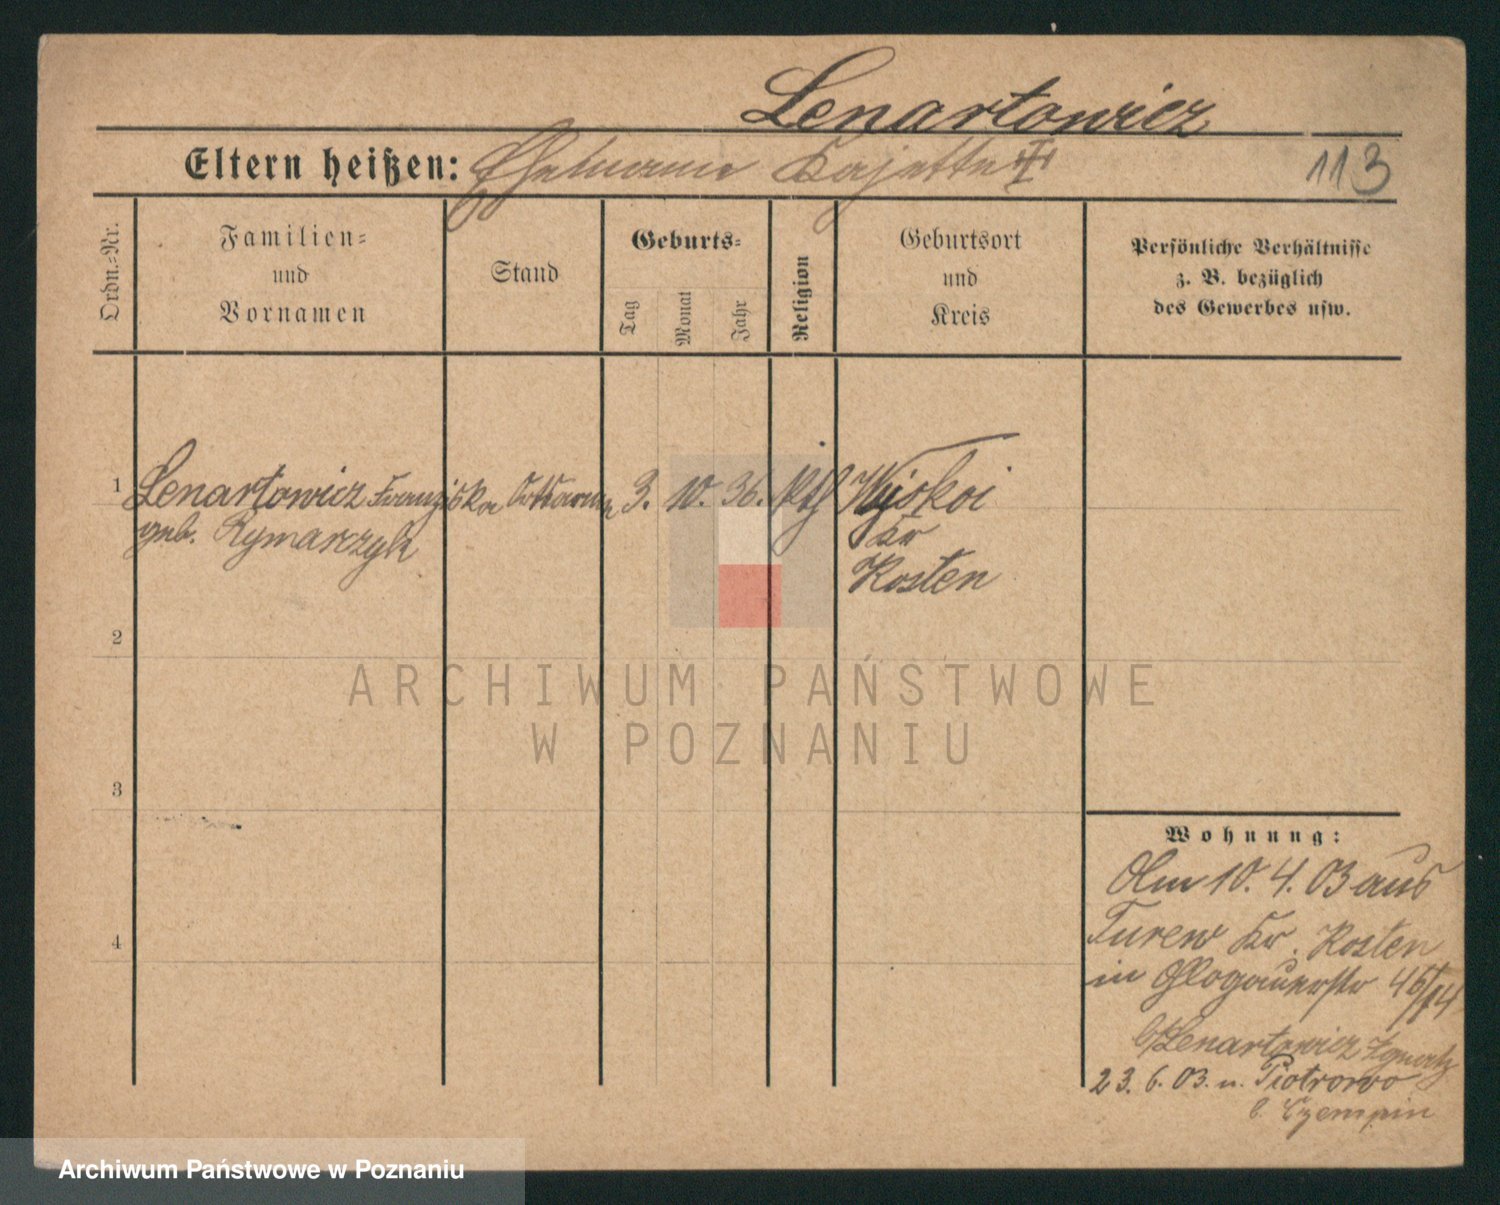 Lenartowicz
Eltern heißen: Ehemann Kajetan
113
Ordn.-Nr.
Familien-
und
Vornamen
Stand
Geburts-
Tag
Monat
Jahr
Religion
Geburtsort
und
Kreis
Persönliche Verhältnisse
z. B. bezüglich
des Gewerbes usw.
1 Lenartowicz Franziska 3. 10. 36. Kth
geb. Rymarzyk
Kr
Kosten
2
ARCHIWUM PAŃSTWOWE
W POZNANIU
3
Wohnung:
Am 10. 4. 03 aus
4
Turew Kr. Kosten
in Glogauerstr
b/Lenartowicz Ignatz
23. 6. 03. n. Piotrowo
b. Czempin
Archiwum Państwowe w Poznaniu